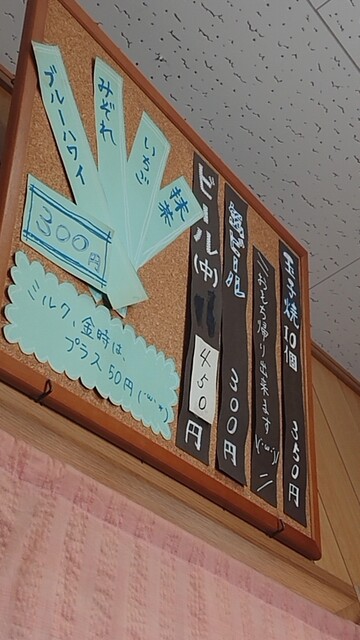 玉子焼10個 350円
\\おもち帰り出来ます(・ω・)//
300円
ビール(中) 450円
抹茶
いちご
みぞれ
ブルーハワイ
300円
ミルク、金時は、
プラス50円(・ω・)